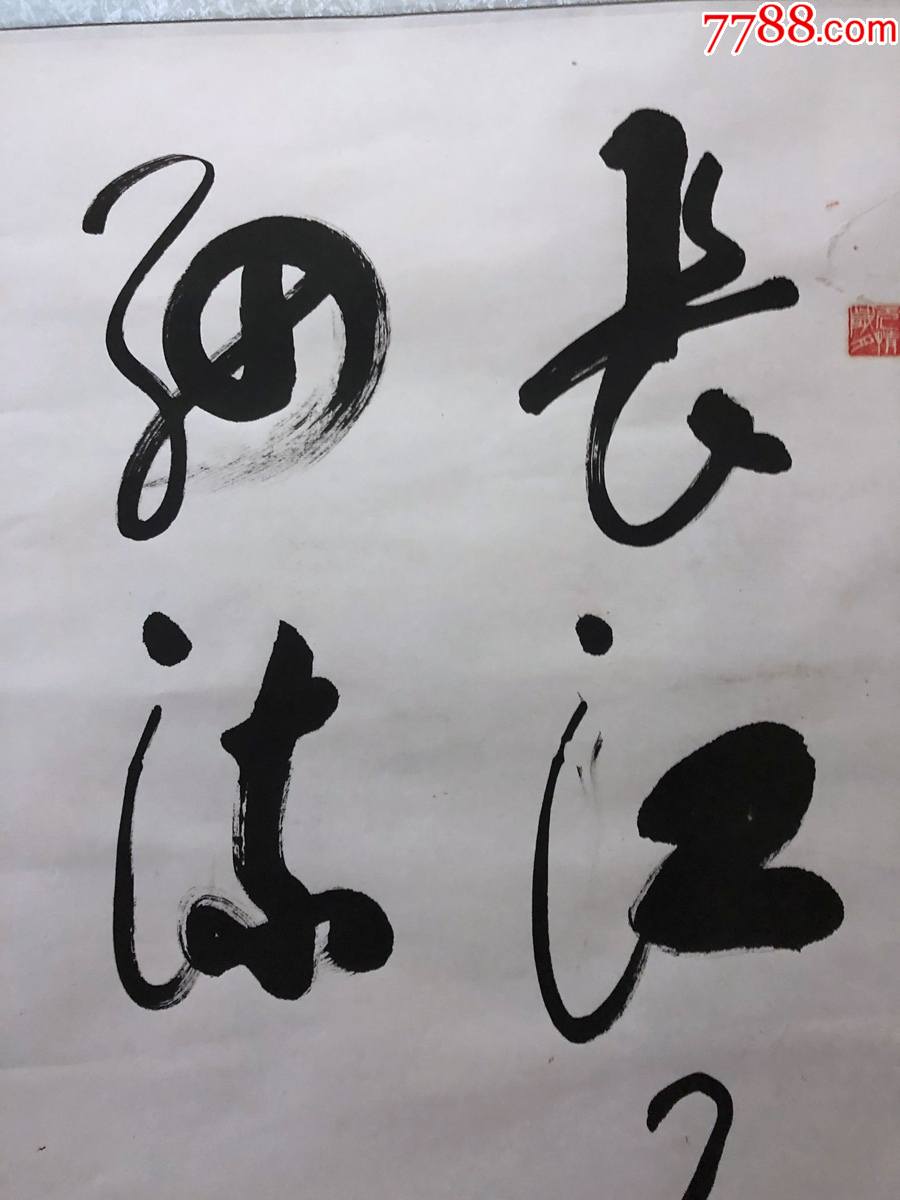 7788.com
長江
細流